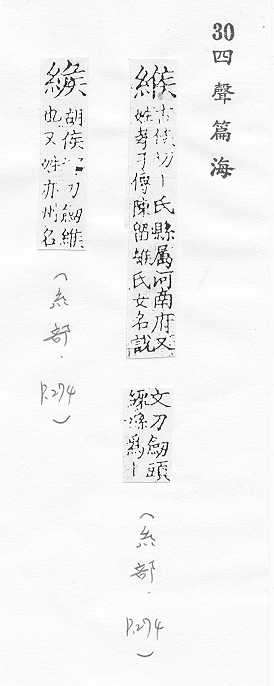 30四聲篇海
緱
古侯切丨氏縣屬河南府又
姓孝子傳陳留緱氏女名說
文刀劒頭
纏絲爲丨
(糸部.
P.274
)
緱
胡侯切刀劒緱
也又姓亦州名
(糸部.
P.274
)